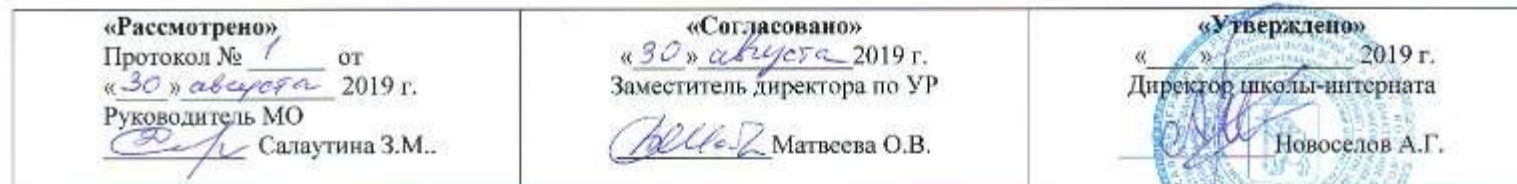 «Рассмотрено»
Протокол № 1 от
«30» августа 2019 г.
Руководитель МО
Салаутина З.М..
«Согласовано»
«30» августа 2019 г.
Заместитель директора по УР
Матвеева О.В.
«Утверждено»
«____» ________ 2019 г.
Директор школы-интерната
Новоселов А.Г.